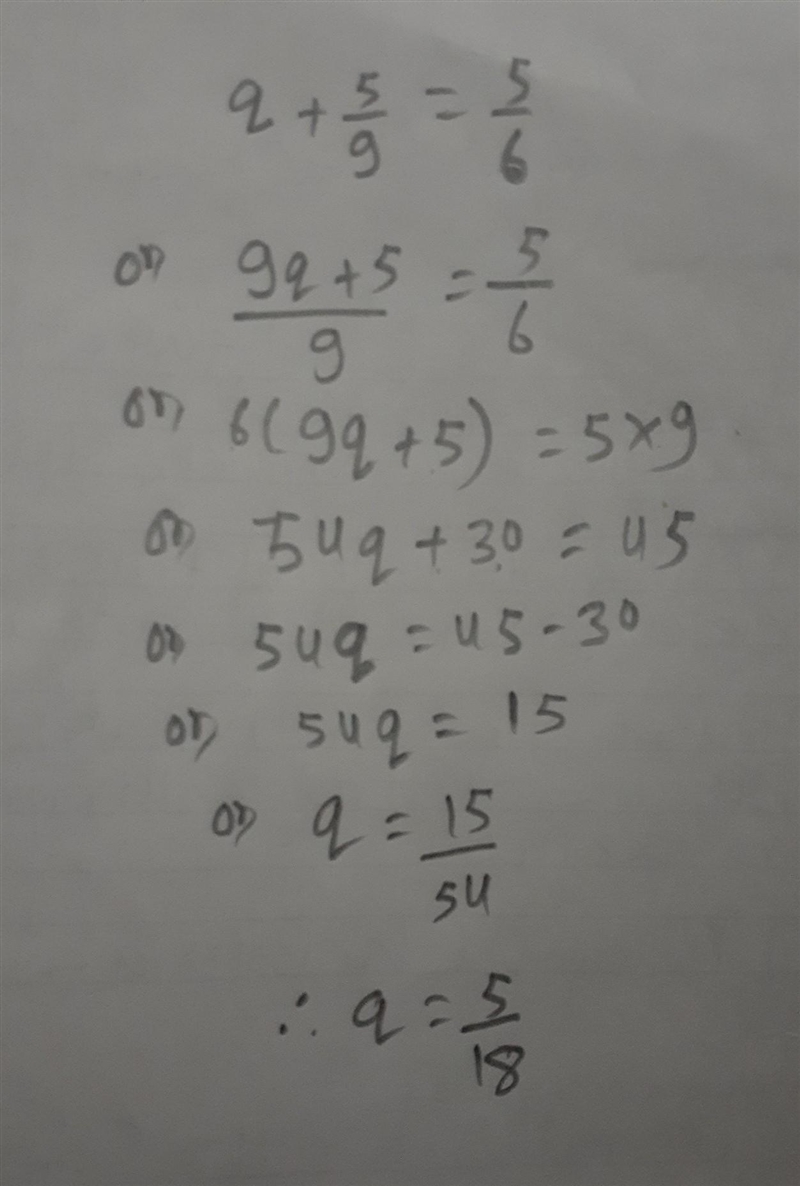 q + 5/9 = 5/6
or (9q + 5)/9 = 5/6
or 6(9q + 5) = 5 × 9
or 54q + 30 = 45
or 54q = 45 - 30
or 54q = 15
or q = 15/54
∴ q = 5/18